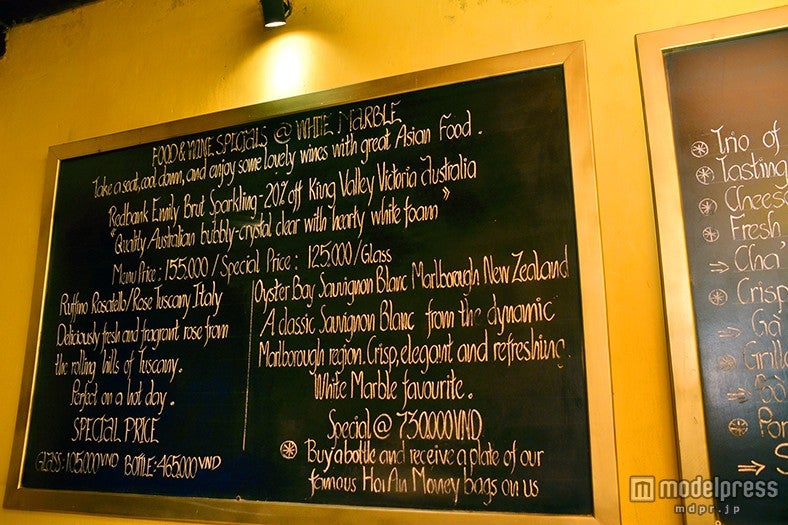 FOOD & WINE SPECIALS @ WHITE MARBLE
Take a seat, cool down, and enjoy some lovely wines with great Asian Food.
Redbank Emily Brut Sparkling - 20% off King Valley Victoria Australia
"Quality Australian bubbly - crystal clear with hearty white foam"
Menu Price: 155.000 / Special Price: 125.000 / Glass
Ruffino Rosatello/Rose Tuscany Italy
Deliciously fresh and fragrant rose from
the rolling hills of Tuscany.
Perfect on a hot day.
SPECIAL PRICE
GLASS: 105.000 VND BOTTLE: 465.000 VND
Oyster Bay Sauvignon Blanc Marlborough New Zealand
A classic Sauvignon Blanc from the dynamic
Marlborough region. Crisp, elegant and refreshing.
White Marble favourite.
Special @ 730.000 VND
Buy a bottle and receive a plate of our
famous Hoi An Money bags on us
Trio of
Tasting
Cheese
Fresh
Cha'
Crisp
Ga'
Grille
m modelpress
mdpr.jp